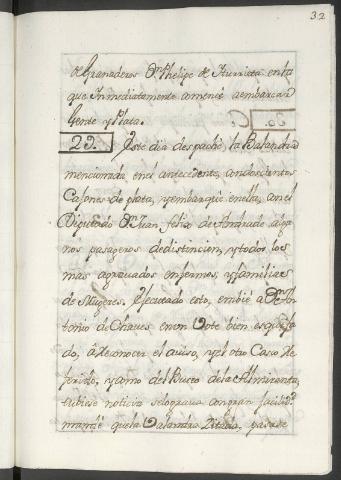 32
de Granaderos Dn. Phelipe de Iturrieta en la
que Inmediatamente comencé a embarcar
Gente y Plata.
29. Este dia despaché la Balandra
mencionada en el antecedente, con doscientos
Cajones de plata, y embarqué en ella, con el
Diputado Dn. Juan felix de Andrade algu
nos pasageros de distincion, y todos los
mas agravados enfermos, y familias
de Mugeres. Executado esto, embié a Dn. An
tonio de Chaves en un Vote bien esquifa
do, â reconocer el aviso, y el otro Casco Re
ferido, y como del Buceo de la Almiranta
tubiese noticia se lograva con gran facilid.
mandé que la Balandra Zitada, pasase